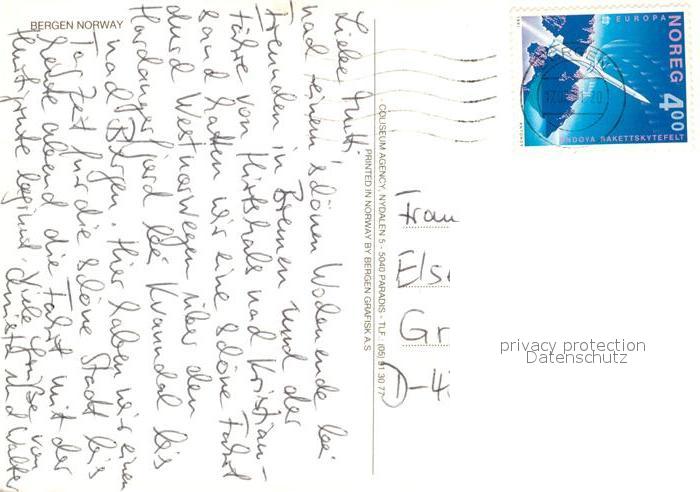 BERGEN NORWAY
Liebe Mutti,
nach einem schönen Wochenende bei
Freunden in Bremen und der
Fähre von Hirtshals nach Kristian-
sand hatten wir eine schöne Fahrt
durch Westnorwegen über den
Hardangerfjord bei Kvanndal bis
nach Bergen. Hier haben wir einen
Tag Zeit für die schöne Stadt bis
heute abend die Fahrt mit der
Hurtigrute beginnt. Viele Grüße von
und Walter
COLISEUM AGENCY, NYDALEN 5 - 5040 PARADIS - TLF.: (05) 91 30 77
PRINTED IN NORWAY BY BERGEN GRAFISK A.S
EUROPA
NOREG
4 00
ANDØYA RAKETTSKYTEFELT
Frau
Els
Gr
D-4
privacy protection
Datenschutz